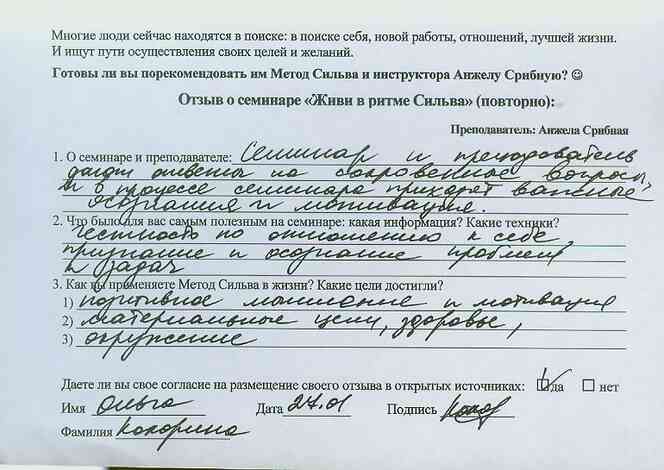 Многие люди сейчас находятся в поиске: в поиске себя, новой работы, отношений, лучшей жизни.
И ищут пути осуществления своих целей и желаний.
Готовы ли вы порекомендовать им Метод Сильва и инструктора Анжелу Срибную? ☺
Отзыв о семинаре «Живи в ритме Сильва» (повторно):
Преподаватель: Анжела Срибная
1. О семинаре и преподавателе: Семинар и преподователь
дают ответы на сокровенное вопросы,
и в процессе семинара приходят важные
осознания и мотивация.
2. Что было для вас самым полезным на семинаре: какая информация? Какие техники?
Честность по отношению к себе,
признание и осознание проблем
и задач
3. Как вы применяете Метод Сильва в жизни? Какие цели достигли?
1) позитивное мышление и мотивация
2) материальные цели, здоровье,
3) окружение
Даете ли вы свое согласие на размещение своего отзыва в открытых источниках: ☑ да ☐ нет
Имя Ольга Дата 27.01 Подпись
Фамилия Кокорина